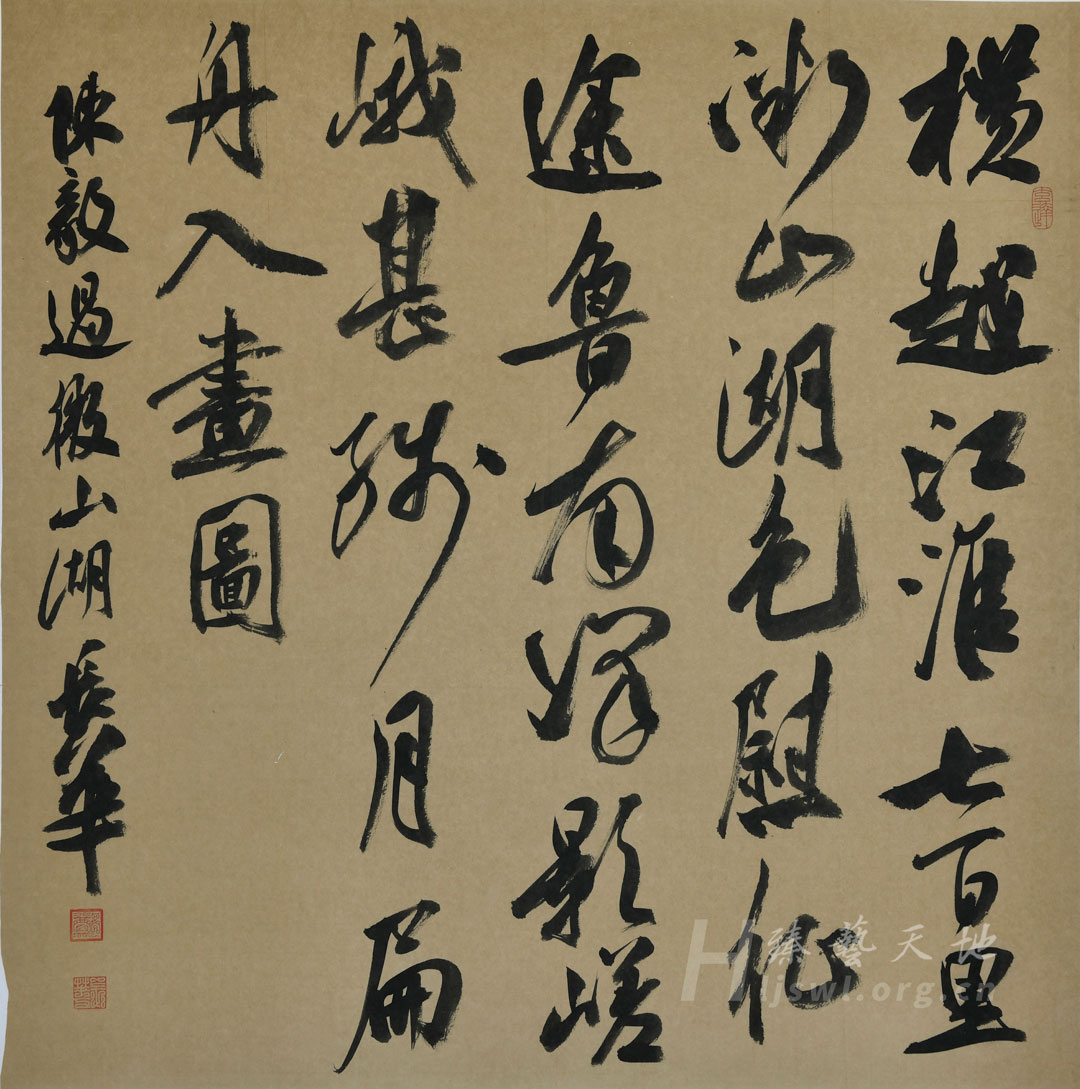 橫越江淮七百里
微山湖色慰征
途魯南峰影嵯
峨甚殘月扁
舟入畫圖
陳毅過微山湖
臻藝天地
Hljswl.org.cn